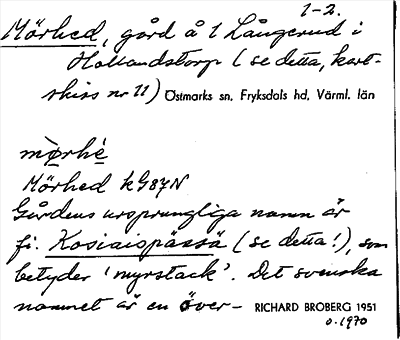 1-2.
Mörhed, gård å 1 Långerud i
Hollandstorp (se detta, kart-
skiss nr 11) Östmarks sn. Fryksdals hd, Värml. län
mò̱rhè̱
Mörhed kG87N
Gårdens ursprungliga namn är
fi. Kosiaispässä (se detta!), som
betyder 'myrstack'. Det svenska
namnet är en över- RICHARD BROBERG 1951
o. 1970